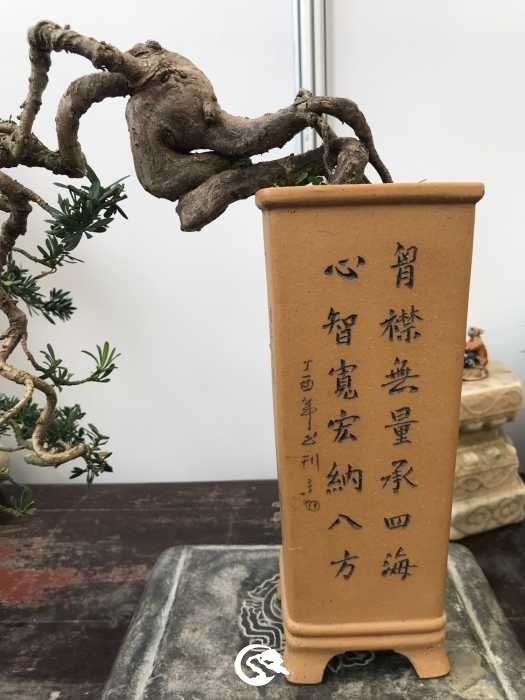 胷襟無量承四海
心智寬宏納八方
丁酉年
刊